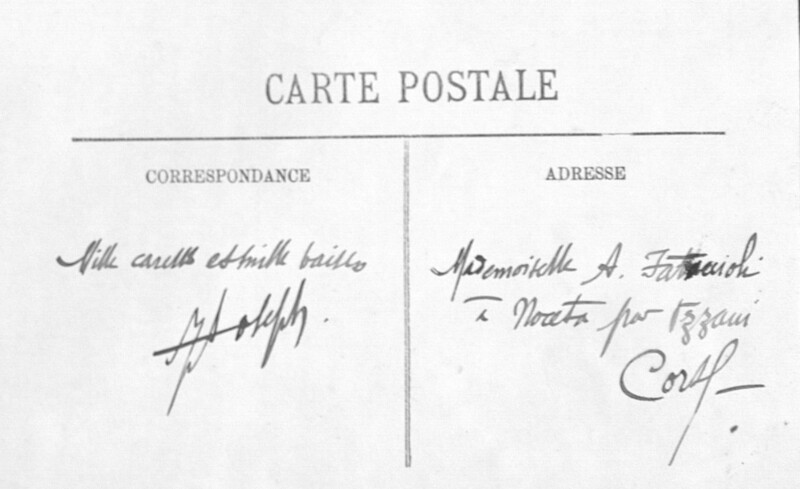 CARTE POSTALE
CORRESPONDANCE
Mille caresses et mille baisers
Joseph.
ADRESSE
Mademoiselle A. Fattaccioli
à Noceta par Vezzani
Corse